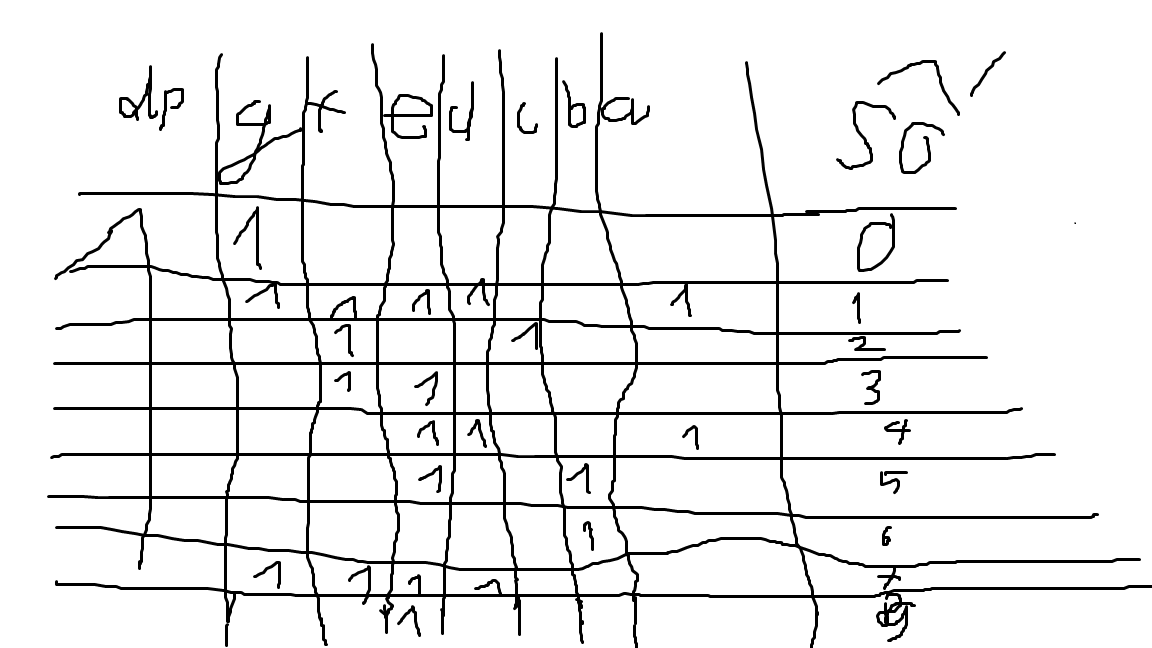 dp g f e d c b a số
1 1 0
1 1 1 1 1 1
1 1 2
1 1 3
1 1 1 4
1 1 5
1 6
1 1 1 1 7
1 9